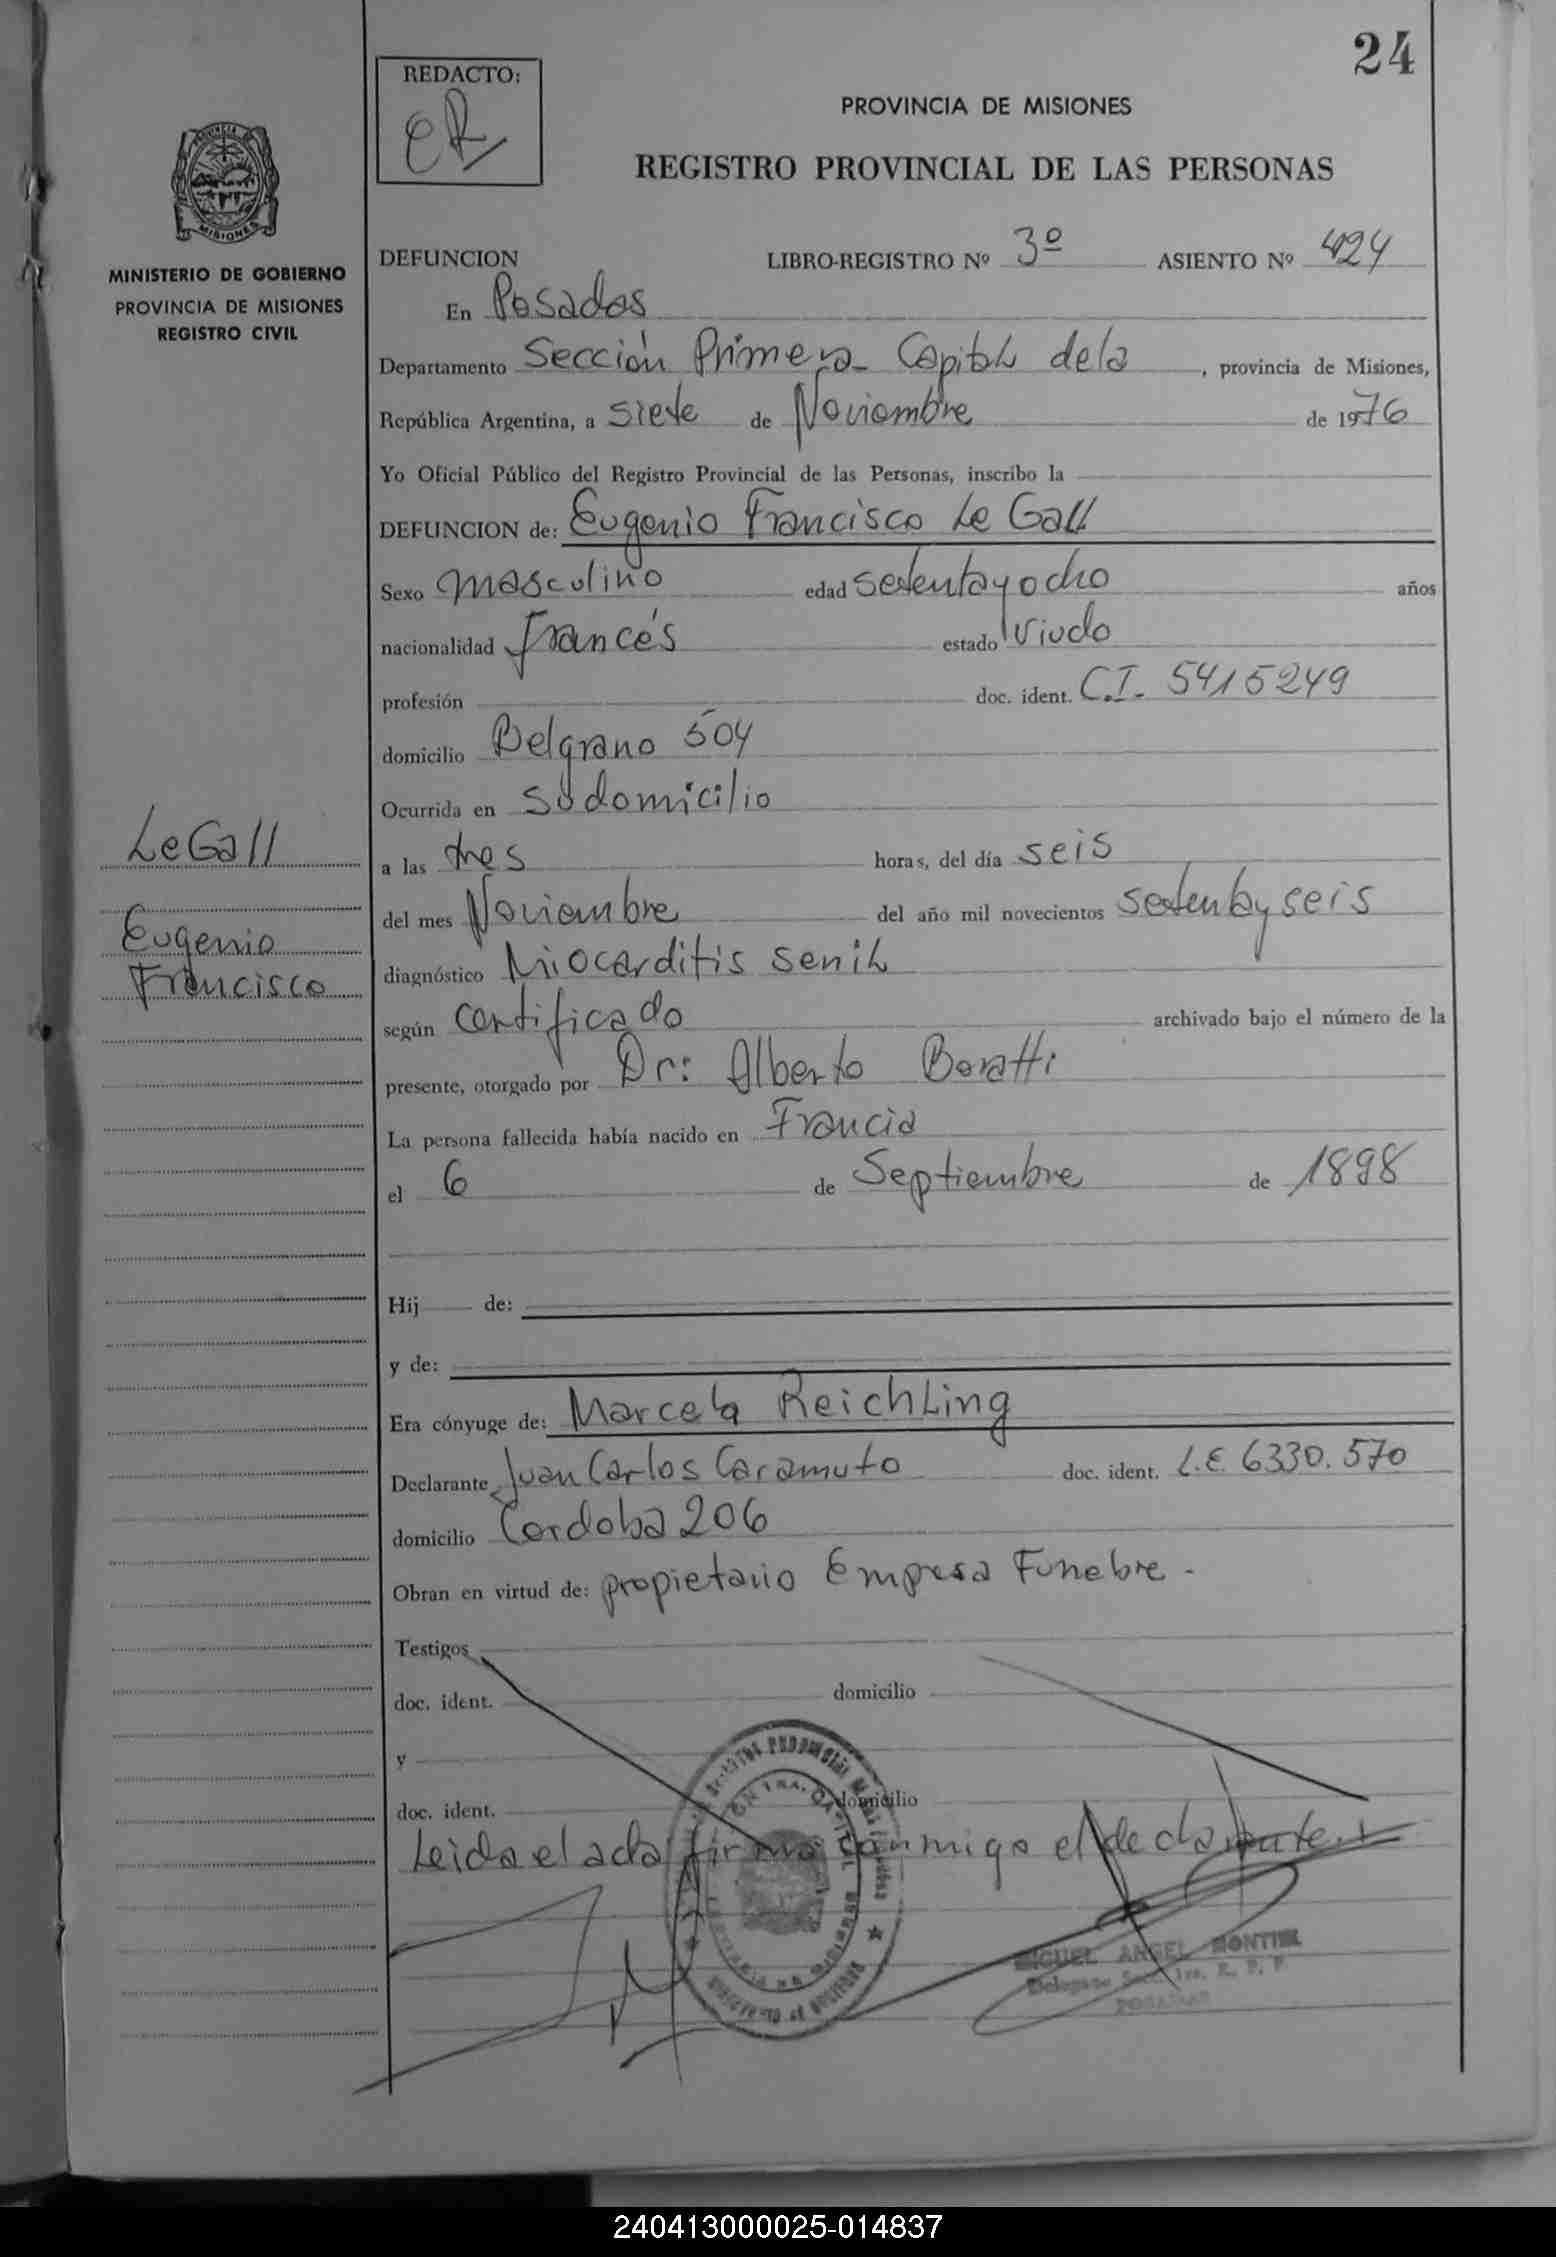 24
REDACTO:
ER
PROVINCIA DE MISIONES
REGISTRO PROVINCIAL DE LAS PERSONAS
PROVINCIA DE
MISIONES
MINISTERIO DE GOBIERNO
PROVINCIA DE MISIONES
REGISTRO CIVIL
DEFUNCION LIBRO-REGISTRO Nº 3º ASIENTO Nº 424
En Posadas
Departamento Sección Primera Capital dela , provincia de Misiones,
República Argentina, a siete de Noviembre de 1976
Yo Oficial Público del Registro Provincial de las Personas, inscribo la
DEFUNCION de: Eugenio Francisco Le Gall
Sexo masculino edad setentayocho años
nacionalidad francés estado Viudo
profesión doc. ident. C.I. 5415249
domicilio Belgrano 504
Ocurrida en Sudomicilio
Le Gall
a las tres horas, del día seis
Eugenio
Francisco
del mes Noviembre del año mil novecientos setentayseis
diagnóstico Miocarditis senil
según certificado archivado bajo el número de la
presente, otorgado por Dr: Alberto Boratti
La persona fallecida había nacido en Francia
el 6 de Septiembre de 1898
Hij de:
y de:
Era cónyuge de: Marcela Reichling
Declarante Juan Carlos Caramuto doc. ident. L.E. 6330.570
domicilio Cordoba 206
Obran en virtud de: propietario Empresa Funebre -
Testigos
doc. ident. domicilio
y
doc. ident. domicilio
Leida el acta firma conmigo el declarante.
MIGUEL ANGEL MONTIEL
POSADAS
240413000025-014837